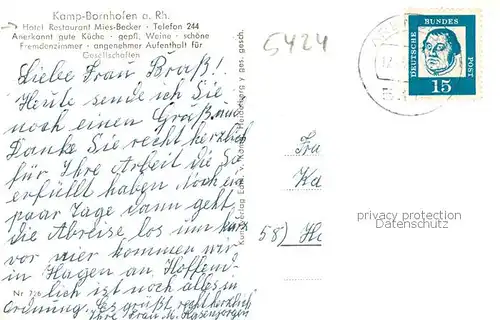 Kamp-Bornhofen a. Rh.
Hotel Restaurant Mies-Becker · Telefon 244
Anerkannt gute Küche · gepfl. Weine · schöne
Fremdenzimmer · angenehmer Aufenthalt für
Gesellschaften
5424
Liebe Frau Braß!
Heute sende ich Sie
noch einen Gruß und
Danke Sie recht herzlich
für Ihre Arbeit die Sie
erfüllt haben. Noch ein
paar Tage dann geht
die Abreise los um kurz
vor vier kommen wir
in Hagen an. Hoffend
lich ist noch alles in
Ordnung. Es grüßt recht herzlich
Ihre Frau M. Hasenjergen
Nr. 726
Kunstverlag Edm. v. König, Heidelberg
ges. gesch.
DEUTSCHE BUNDES POST
15
Fra
Ka
58) Ha
privacy protection
Datenschutz